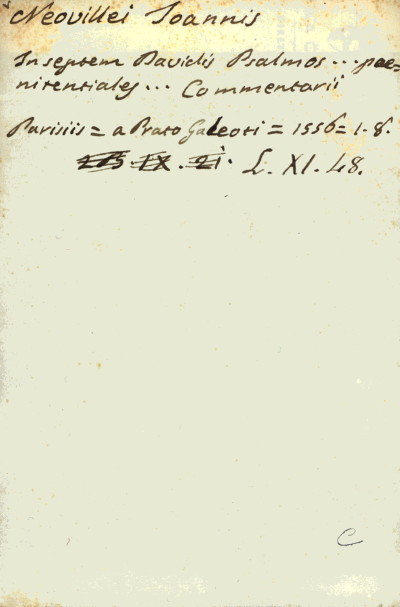 Neovillei Joannis
In septem Davidis Psalmos... pae=
nitentiales... Commentarii
Parisiis = a Prato Galeoti = 1556 = 1. 8.
L. XI. 48.
C